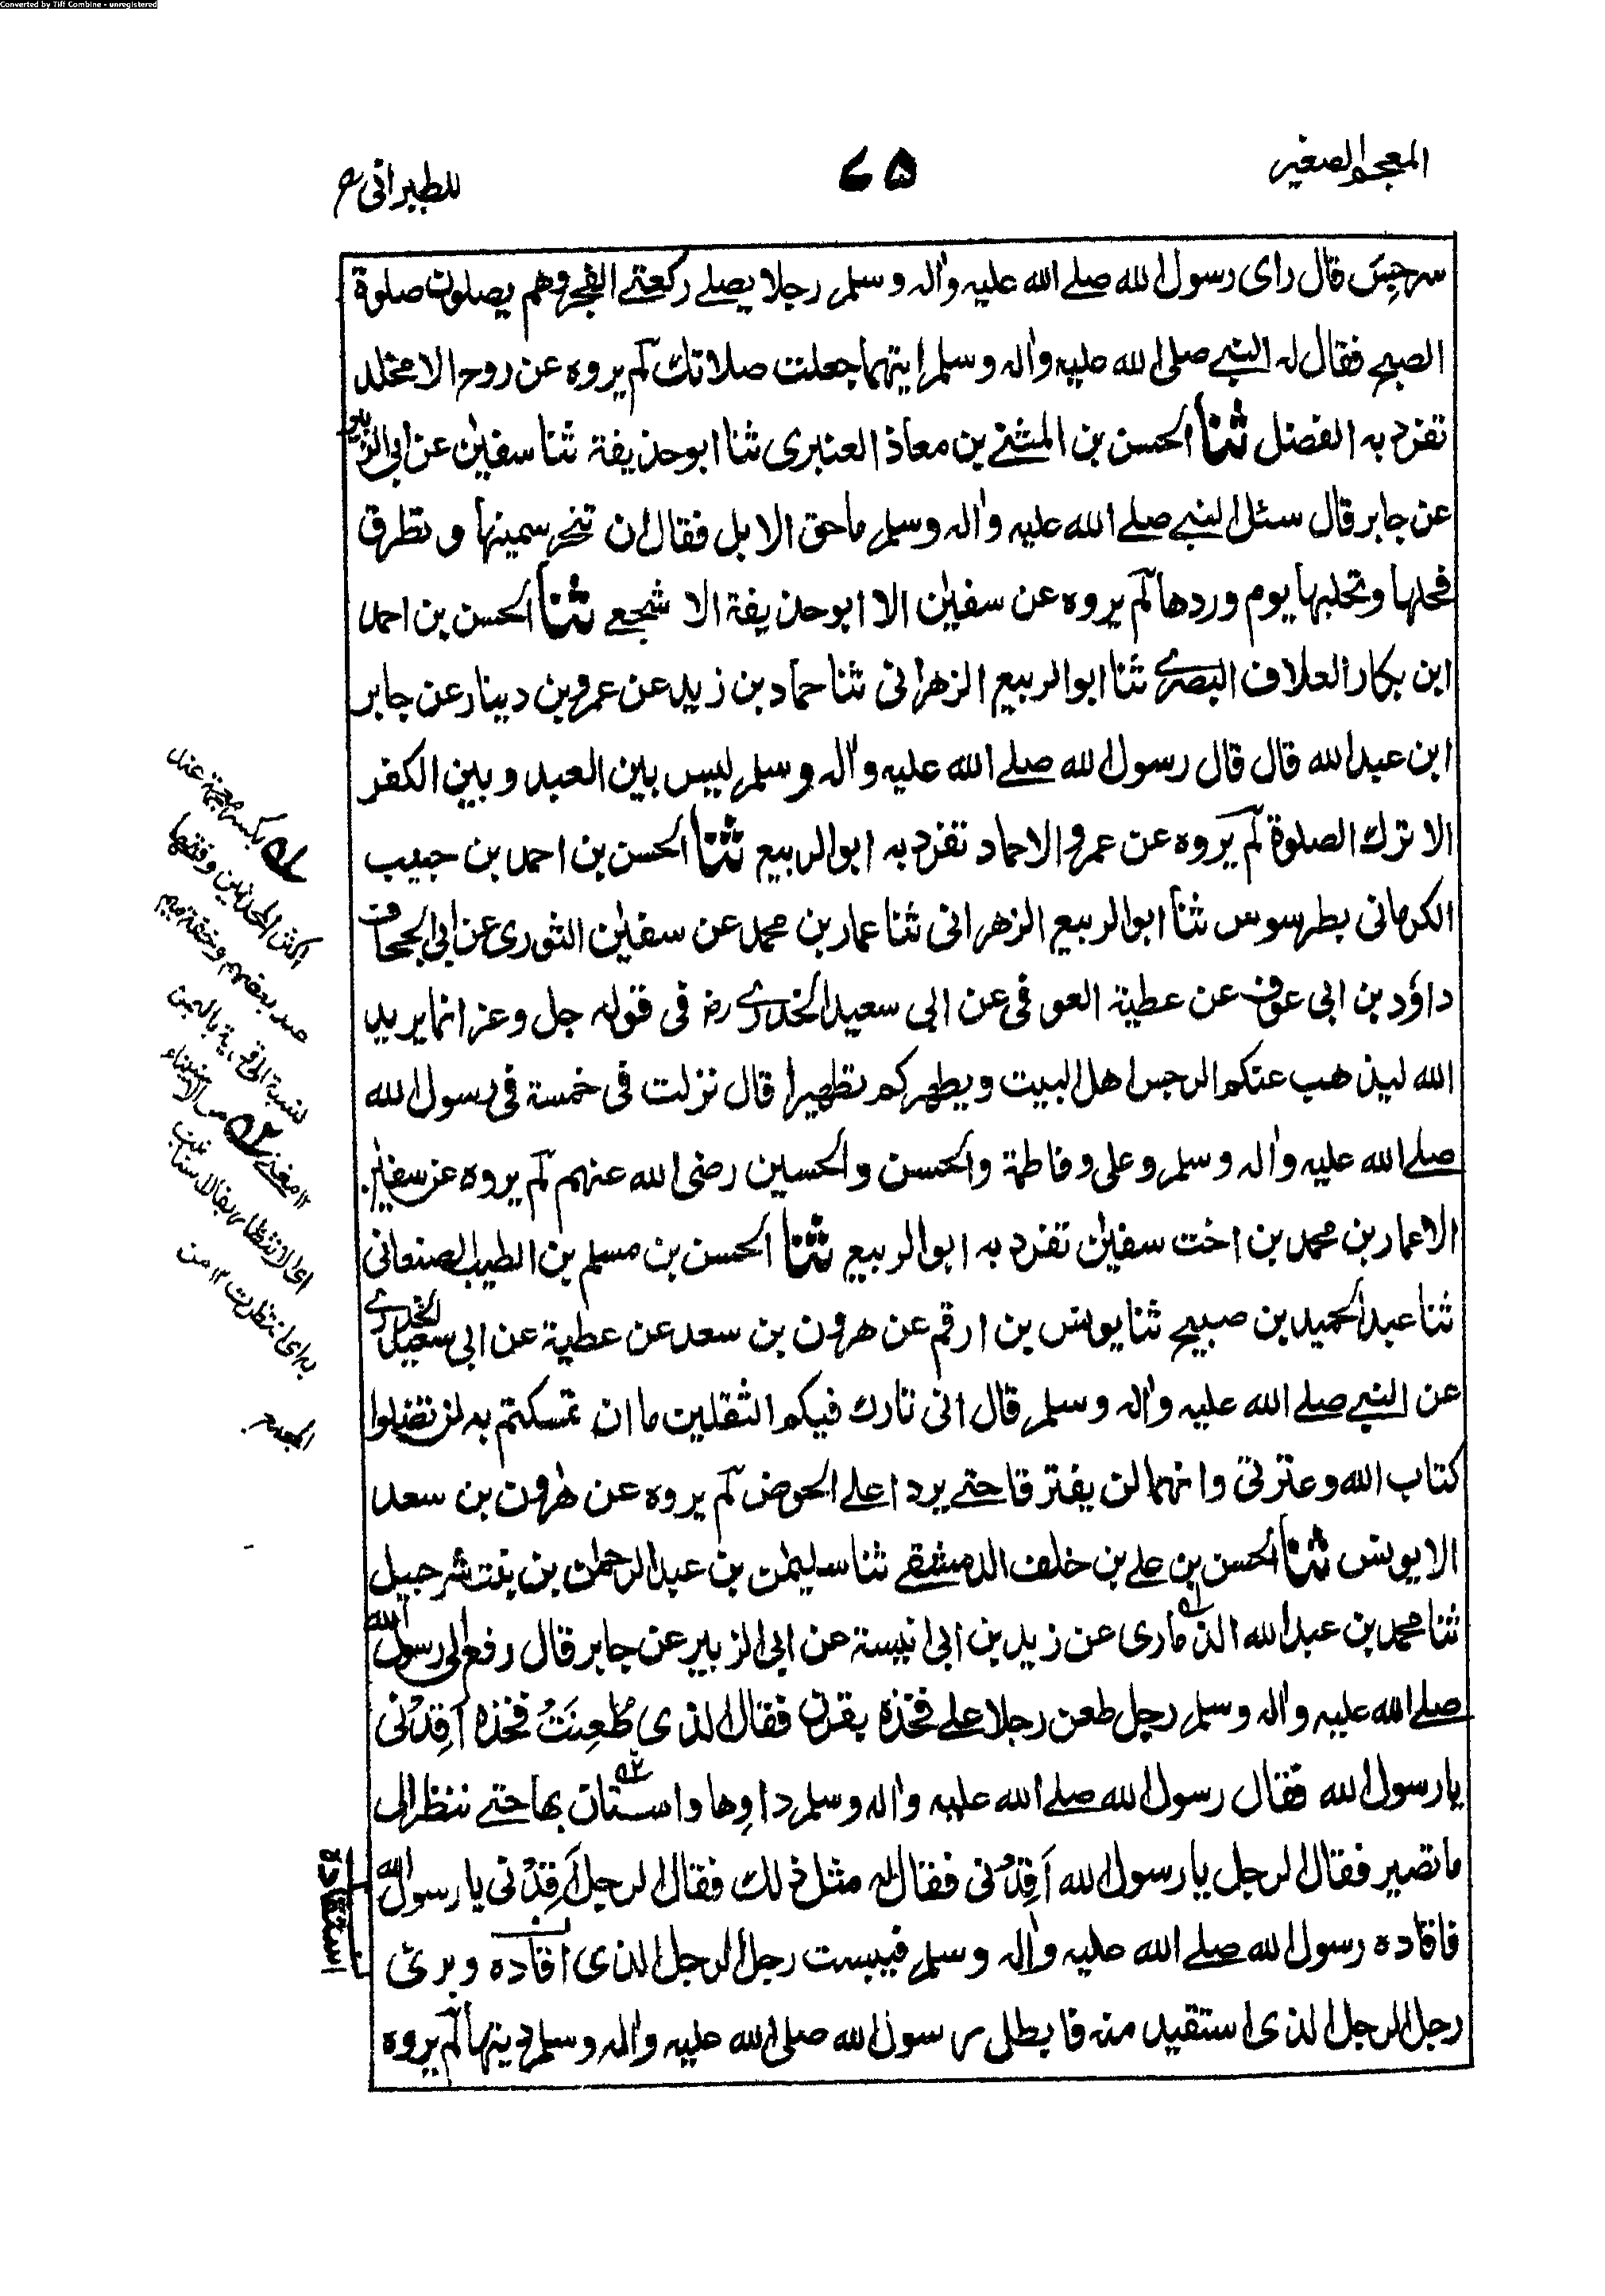 Converted by Tiff Combine - unregistered
المعجم الصغير
٧٥
للطبرانی رح
سرجس قال رای رسول الله صلے الله علیه واٰله وسلم رجلا یصلے رکعتے الفجر وهم یصلون صلوة
الصبح فقال له النبے صلی الله علیه واٰله وسلم ایتهما جعلت صلاتك لم یروه عن روح الا مخلد
تفرد به الفضل ثنا الحسن بن المثنے بن معاذ العنبری ثنا ابوحذیفة ثنا سفیٰن عن ابی الزبیر
عن جابر قال سئل النبے صلے الله علیه واٰله وسلم ماحق الابل فقال ان تنحر سمینها و تطرق
فحلها وتحلبها یوم وردها لم یروه عن سفیٰن الا ابوحذیفة الا شجعے ثنا الحسن بن احمد
ابن بکار العلاف البصرے ثنا ابوالربیع الزهرانی ثنا حماد بن زید عن عمرو بن دینار عن جابر
ابن عبد الله قال قال رسول الله صلے الله علیه واٰله وسلم لیس بین العبد وبین الکفر
الا ترك الصلوة لم یروه عن عمرو الاحماد تفرد به ابوالربیع ثنا الحسن بن احمد بن حبیب
الکرمانی بطرسوس ثنا ابوالربیع الزهرانی ثنا عمار بن محمد عن سفیٰن الثوری عن ابی الجحاف
داؤد بن ابی عوف عن عطیة العوفی عن ابی سعید الخدرے رض فی قوله جل وعز انما یرید
الله لیذهب عنکم الرجس اهل البیت ویطهرکم تطهیرا قال نزلت فی خمسة فی رسول الله
صلے الله علیه واٰله وسلم وعلی وفاطمة والحسن والحسین رضی الله عنهم لم یروه عن سفیٰن
الاعمار بن محمد بن اخت سفیٰن تفرد به ابوالربیع ثنا الحسن بن مسلم بن الطیب الصنعانی
ثنا عبد الحمید بن صبیح ثنا یونس بن ارقم عن هرون بن سعد عن عطیة عن ابی سعید الخدرے
عن النبے صلے الله علیه واٰله وسلم قال انی تارك فیکم الثقلین ما ان تمسکتم به لن تضلوا
کتاب الله وعترتی وانهما لن یفترقا حتے یردا علے الحوض لم یروه عن هٰرون بن سعد
الا یونس ثنا الحسن بن علے بن خلف الدمشقے ثنا سلیمٰن بن عبد الرحمٰن بن بنت شرحبیل
ثنا محمد بن عبد الله الذماری عن زید بن ابی انیسة عن ابی الزبیر عن جابر قال رفع الی رسول الله
صلے الله علیه واٰله وسلم رجل طعن رجلا علے فخذه بقرن فقال الذی طُعِنَتْ فخذه اَقِدْنی
یا رسول الله فقال رسول الله صلے الله علیه واٰله وسلم داوِها واستان بها حتے ننظر الی
ما تصیر فقال الرجل یا رسول الله اَقِدْنی فقال له مثل ذلك فقال الرجل اَقِدْنی یا رسول الله
فاقاده رسول الله صلے الله علیه واٰله وسلم فیبست رجل الرجل الذی اقاده وبرئ
رجل الرجل الذی استقید منه فابطل رسول الله صلی الله علیه واٰله وسلم دیتها لم یروه
بکسر معجمة عند
اکثر المحدثین وفتحها
عند بعضهم وخفة میم
نسبة الی قریة بالیمن
۱۲ مغنے
ای الانتظار یقال
المجمع
استقادة